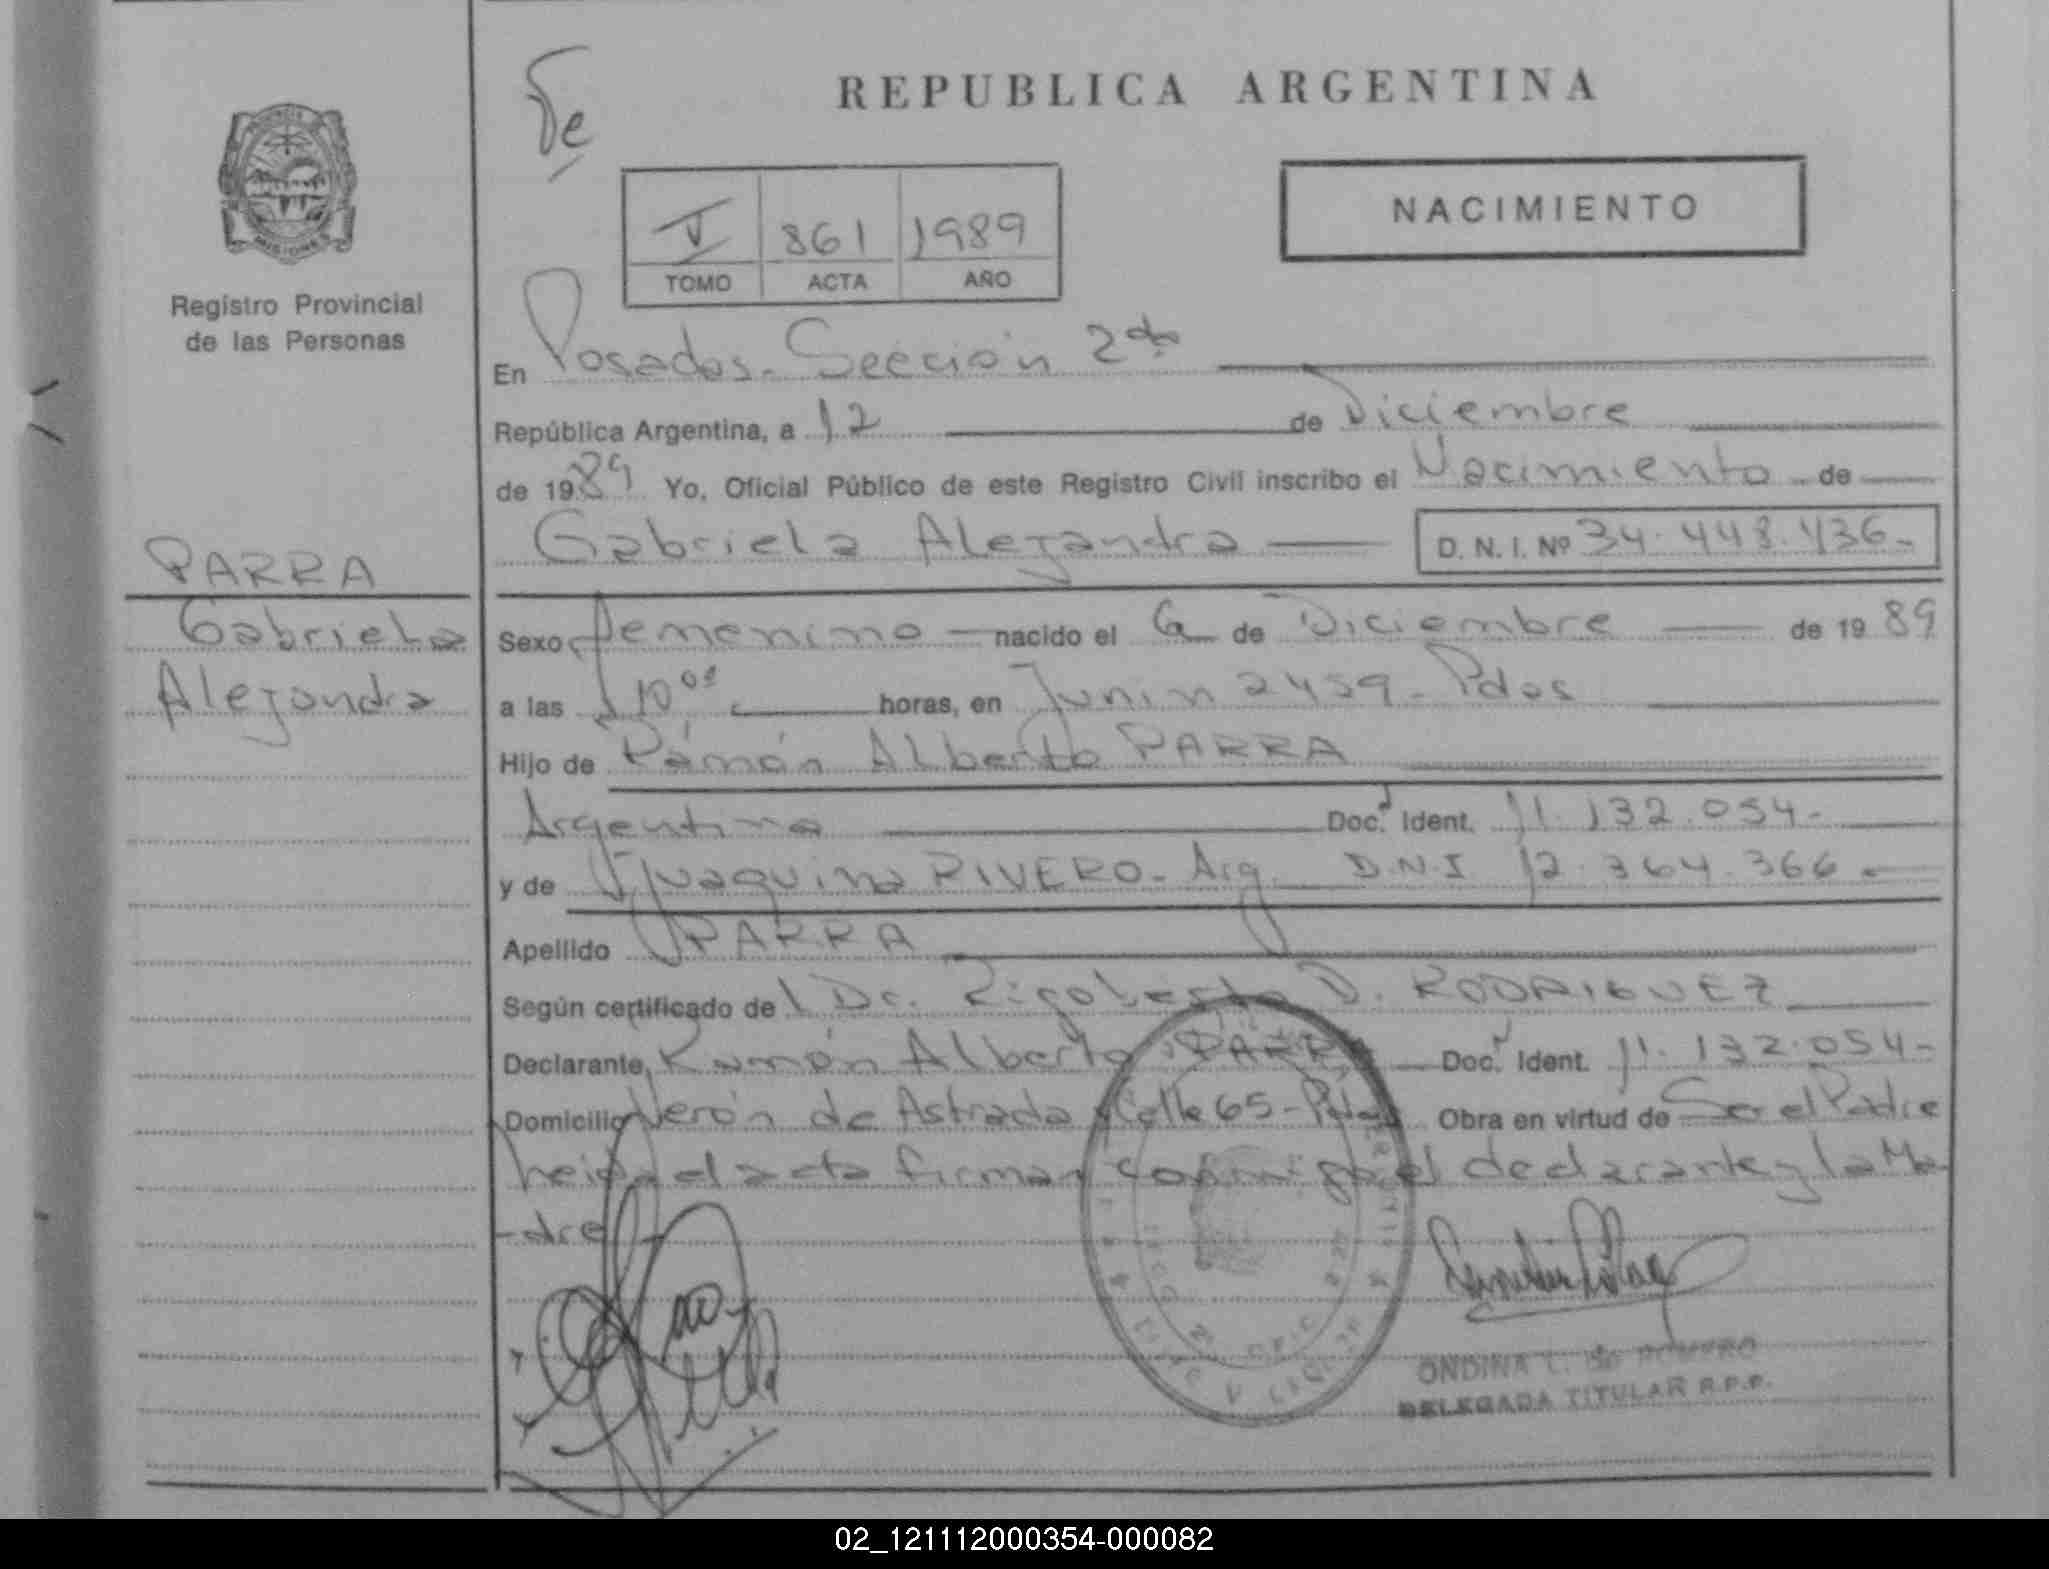 REPUBLICA ARGENTINA
NACIMIENTO
V 861 1989
TOMO ACTA AÑO
MISIONES
Registro Provincial
de las Personas
PARRA
Gabriela
Alejandra
En Posadas. Sección 2da
República Argentina, a 12 de Diciembre
de 1989 Yo, Oficial Público de este Registro Civil inscribo el Nacimiento de
Gabriela Alejandra D. N. I. Nº 34.448.136-
Sexo femenino nacido el 6 de Diciembre de 1989
a las 10 horas, en Junin 2459 - Pdas
Hijo de Ramón Alberto PARRA
Argentino Doc. Ident. 11.132.054-
y de Juaquina RIVERO - Arg. D.N.I 12.364.366
Apellido PARRA
Según certificado de Dr. Rigoberto D. RODRIGUEZ
Declarante, Ramón Alberto PARRA Doc. Ident. 11.132.054-
Domicilio Verón de Astrada y Calle 65 - Pdas Obra en virtud de Ser el Padre
heida el acta firman conmigo el declarante y la Ma-
-dre-
ONDINA L. de ROMERO
DELEGADA TITULAR R.P.P.
02_121112000354-000082